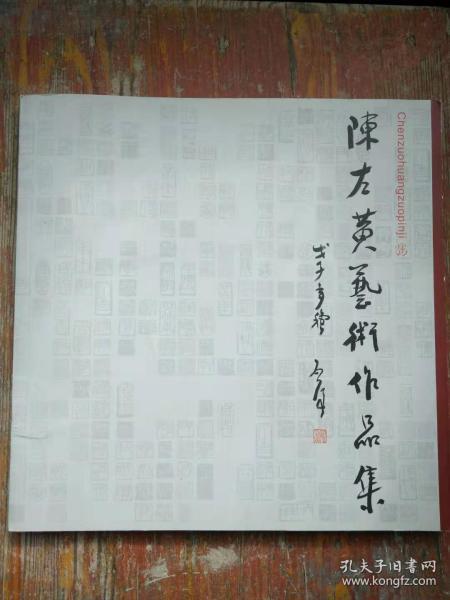 Chenzuohuangzuopinji
陳左黄藝術作品集
戊子
孔夫子旧书网
www.kongfz.com